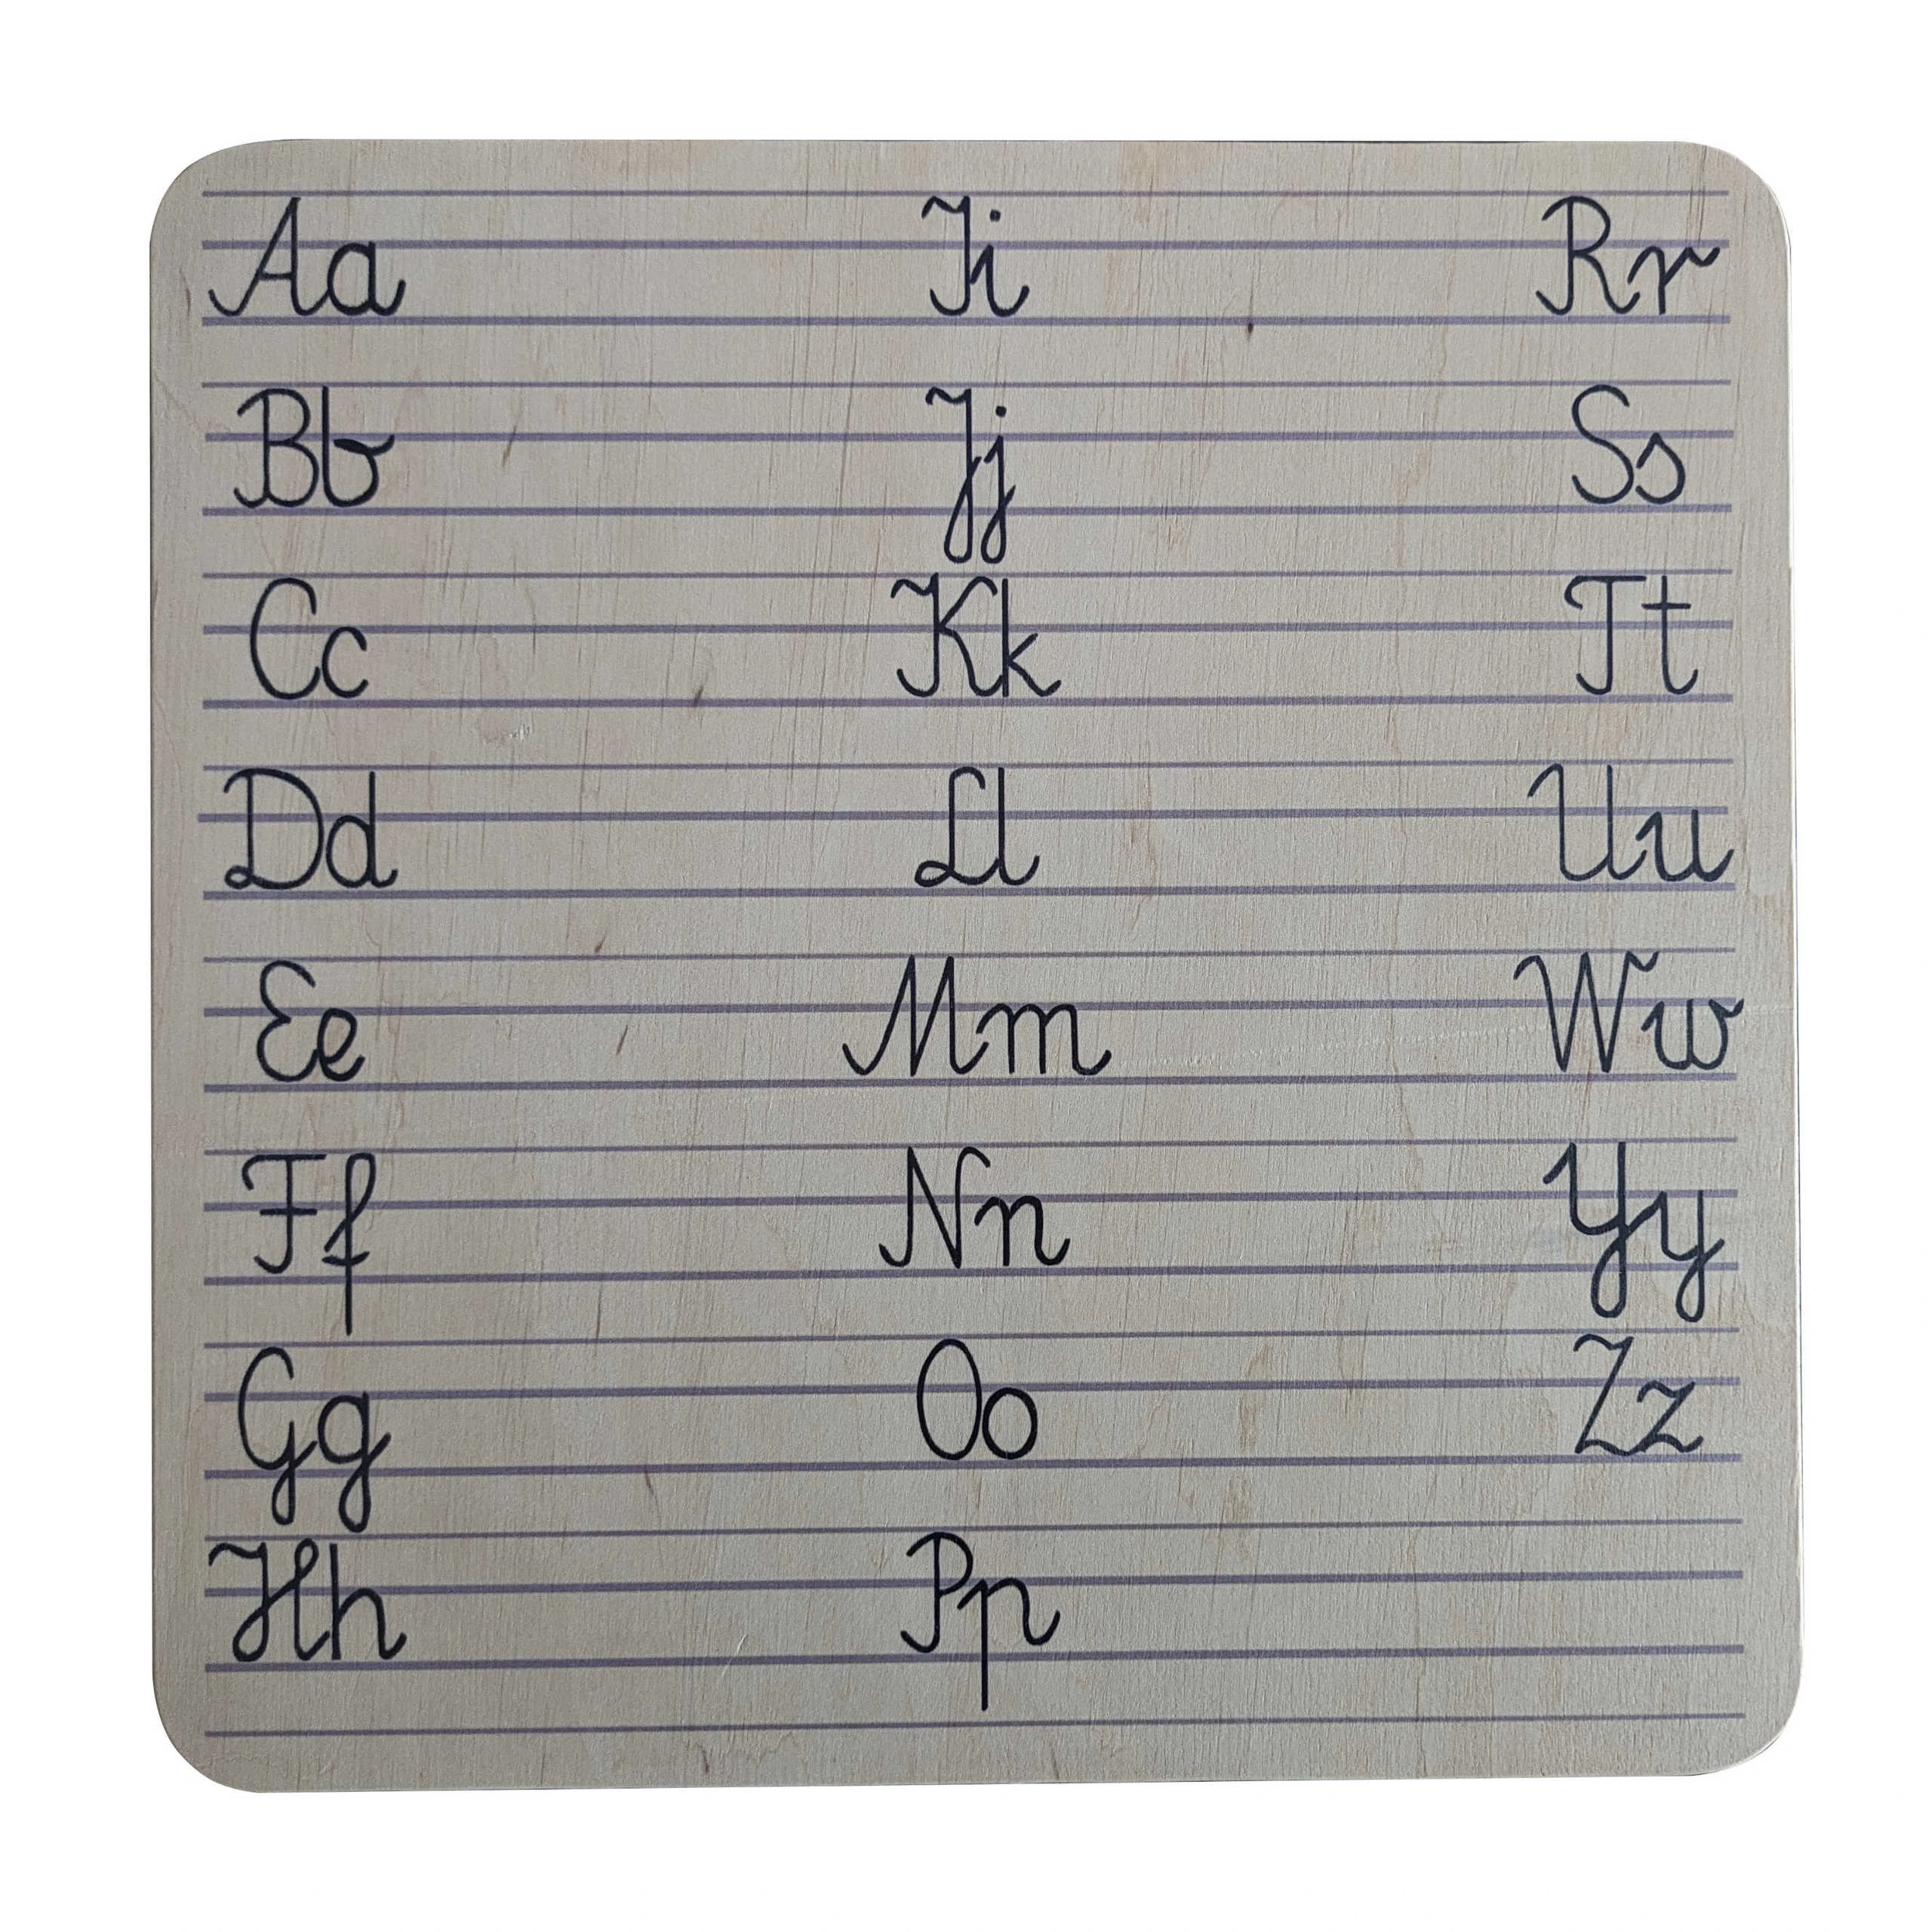 Aa Ii Rr
Bb Jj Ss
Cc Kk Tt
Dd Ll Uu
Ee Mm Ww
Ff Nn Yy
Gg Oo Zz
Hh Pp